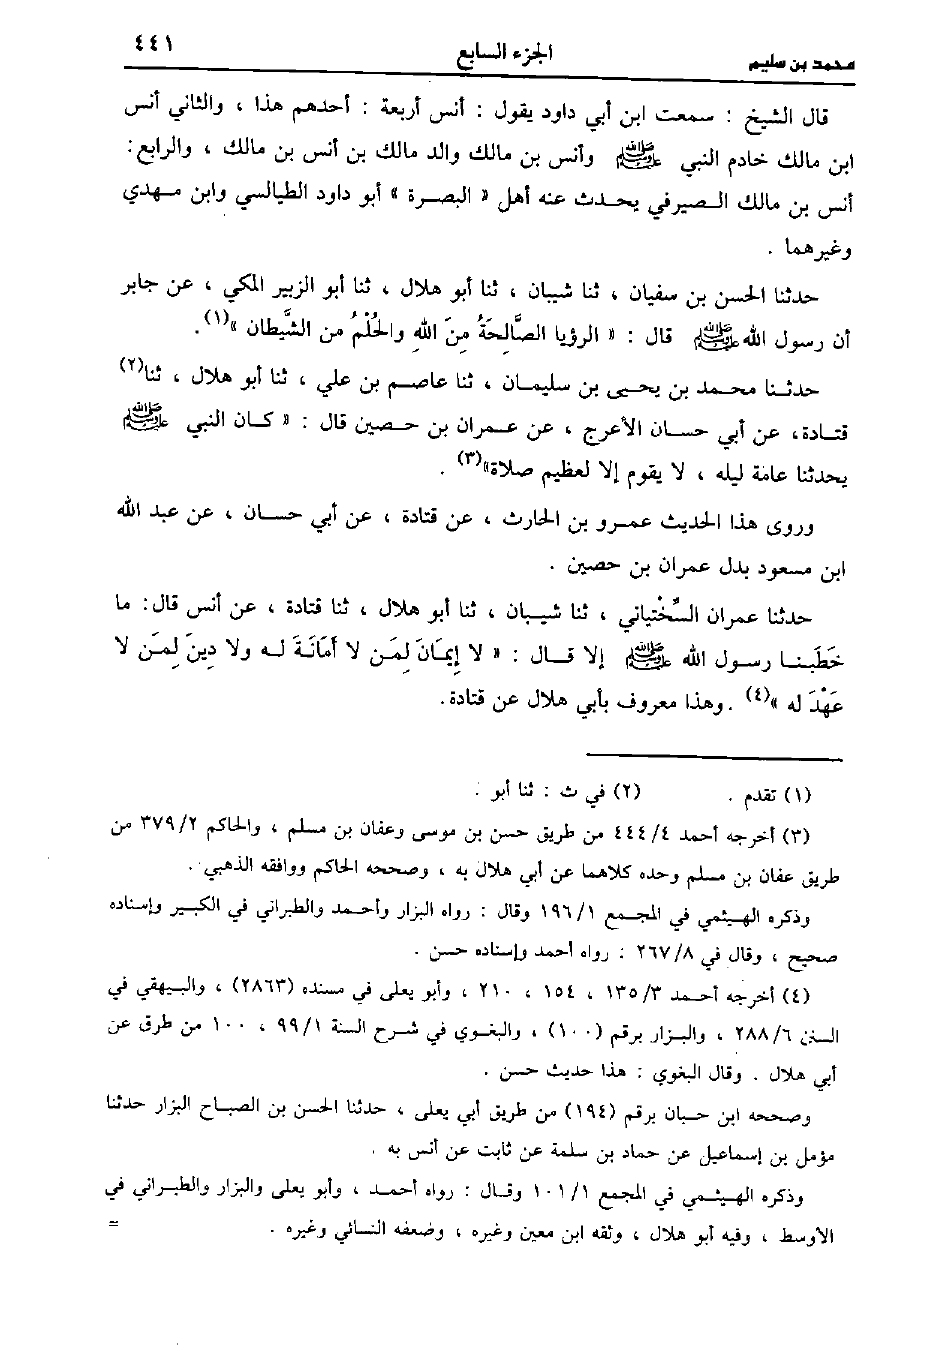 محمد بن سليم الجزء السابع ٤٤١
قال الشيخ : سمعت ابن أبي داود يقول : أنس أربعة : أحدهم هذا ، والثاني أنس
ابن مالك خادم النبي ﷺ وأنس بن مالك والد مالك بن أنس بن مالك ، والرابع :
أنس بن مالك الصيرفي يحدث عنه أهل « البصرة » أبو داود الطيالسي وابن مهدي
وغيرهما .
حدثنا الحسن بن سفيان ، ثنا شيبان ، ثنا أبو هلال ، ثنا أبو الزبير المكي ، عن جابر
أن رسول الله ﷺ قال : « الرؤيا الصَّالحَةُ مِنَ اللهِ والحُلْمُ من الشَّيطان »(١).
حدثنا محمد بن يحيى بن سليمان ، ثنا عاصم بن علي ، ثنا أبو هلال ، ثنا(٢)
قتادة، عن أبي حسان الأعرج ، عن عمران بن حصين قال : « كان النبي ﷺ
يحدثنا عامة ليله ، لا يقوم إلا لعظيم صلاة»(٣) .
وروى هذا الحديث عمرو بن الحارث ، عن قتادة ، عن أبي حسان ، عن عبد الله
ابن مسعود بدل عمران بن حصين .
حدثنا عمران السَّختياني ، ثنا شيبان ، ثنا أبو هلال ، ثنا قتادة ، عن أنس قال: ما
خَطَبَنا رسول الله ﷺ إلا قال : « لا إِيمَانَ لِمَن لا أمَانَةَ له ولا دِينَ لِمَن لا
عَهْدَ له »(٤) . وهذا معروف بأبي هلال عن قتادة.
(١) تقدم . (٢) في ث : ثنا أبو .
(٣) أخرجه أحمد ٤/ ٤٤٤ من طريق حسن بن موسى وعفان بن مسلم ، والحاكم ٢/ ٣٧٩ من
طريق عفان بن مسلم وحده كلاهما عن أبي هلال به ، وصححه الحاكم ووافقه الذهبي .
وذكره الهيثمي في المجمع ١/ ١٩٦ وقال : رواه البزار وأحمد والطبراني في الكبير وإسناده
صحيح ، وقال في ٨/ ٢٦٧ : رواه أحمد وإسناده حسن .
(٤) أخرجه أحمد ٣/ ١٣٥ ، ١٥٤ ، ٢١٠ ، وأبو يعلى في مسنده (٢٨٦٣) ، والبيهقي في
السنن ٦/ ٢٨٨ ، والبزار برقم (١٠٠) ، والبغوي في شرح السنة ١/ ٩٩ ، ١٠٠ من طرق عن
أبي هلال . وقال البغوي : هذا حديث حسن .
وصححه ابن حبان برقم (١٩٤) من طريق أبي يعلى ، حدثنا الحسن بن الصباح البزار حدثنا
مؤمل بن إسماعيل عن حماد بن سلمة عن ثابت عن أنس به .
وذكره الهيثمي في المجمع ١/ ١٠١ وقال : رواه أحمد ، وأبو يعلى والبزار والطبراني في
الأوسط ، وفيه أبو هلال ، وثقه ابن معين وغيره ، وضعفه النسائي وغيره . =